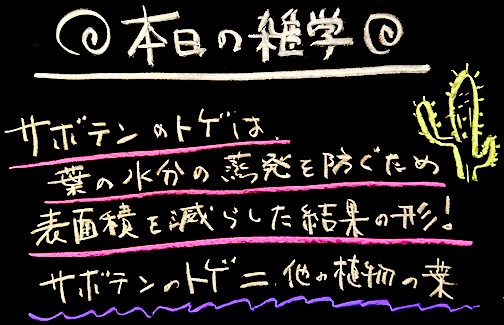 本日の雑学
サボテンのトゲは
葉の水分の蒸発を防ぐため
表面積を減らした結果の形!
サボテンのトゲ=他の植物の葉